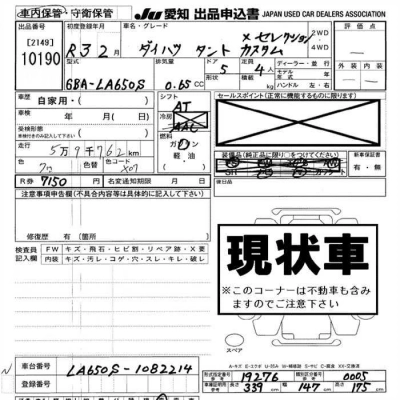 車内保管・守衛保管
JU 愛知 出品申込書 JAPAN USED CAR DEALERS ASSOCIATION
出品番号
[2149]
10190
初度登録年月
R3 2 月
車名・グレード
ダイハツ タント カスタム
Xセレクション
2WD
4WD
評価点
型式
6BA-LA650S
排気量
0.65 CC
ドア
5
定員
4人
ディーラー・並行
モデル年式
ハンドル 右・左
外装
内装
車歴
自家用・
車検 年 月 日
受検形態
走行
5万9千762km
色
色替
色コード
X07
R券 7150 円
名変通知期限 月 日
シフト
AT
冷房
AAC
燃料
ガソリン
軽油
セールスポイント(正常に機能するものに限ります)
装備品(純正品に限り○をつけてください)
新車保証書
有・無
後日品
注意事項申告欄(不具合内容等は具体的に記入して下さい)
修復歴 有(箇所 )
検査員記入欄
FW キズ・飛石・ヒビ割・リペア跡・X要
内装 キズ・汚レ・コゲ・穴・スレ・キレ・破レ
現状車
※このコーナーは不動車も含みますのでご注意下さい
スペア
車台番号 LA650S-1082214
登録番号
型式指定番号 19276
類別区分番号 0005
車輌証明
長さ 339 cm
幅 147 cm
高さ 175 cm